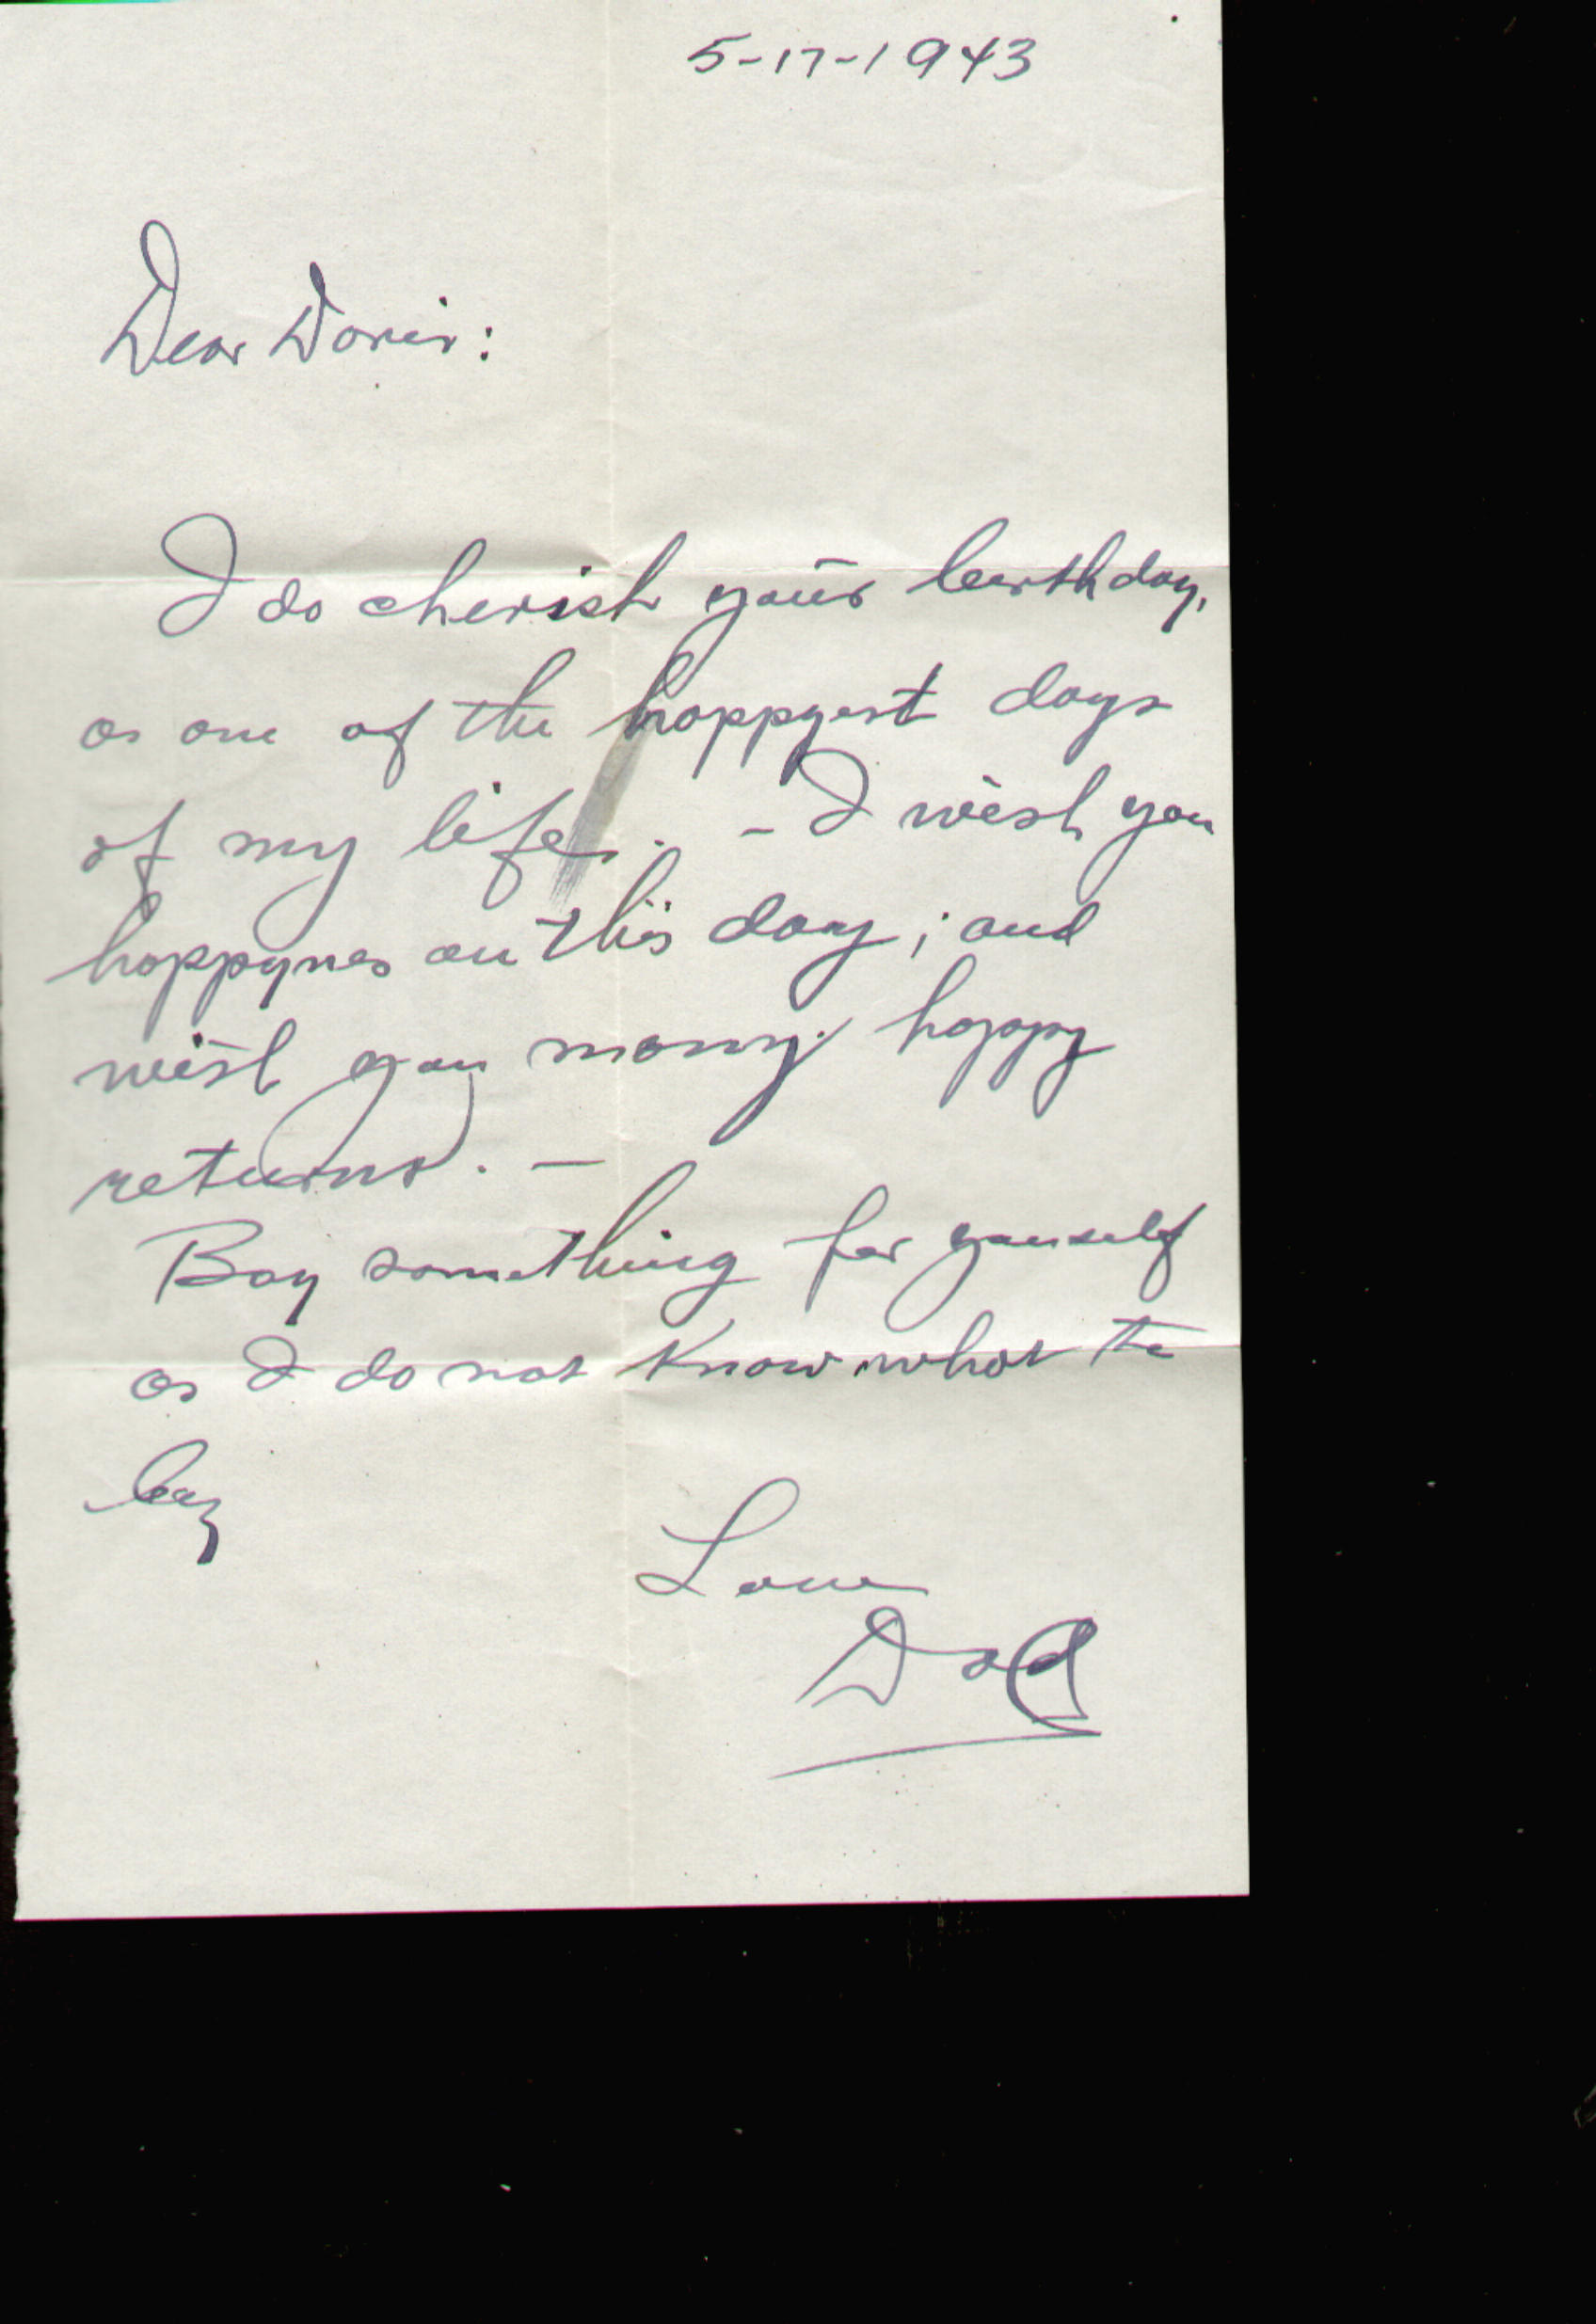 5-17-1943
Dear Doris:
I do cherish your birthday,
as one of the happyest days
of my life. - I wish you
happynes on this day; and
wish you many happy
returns. -
Bay something for yourself
as I do not know what to
bay
Love
Dad